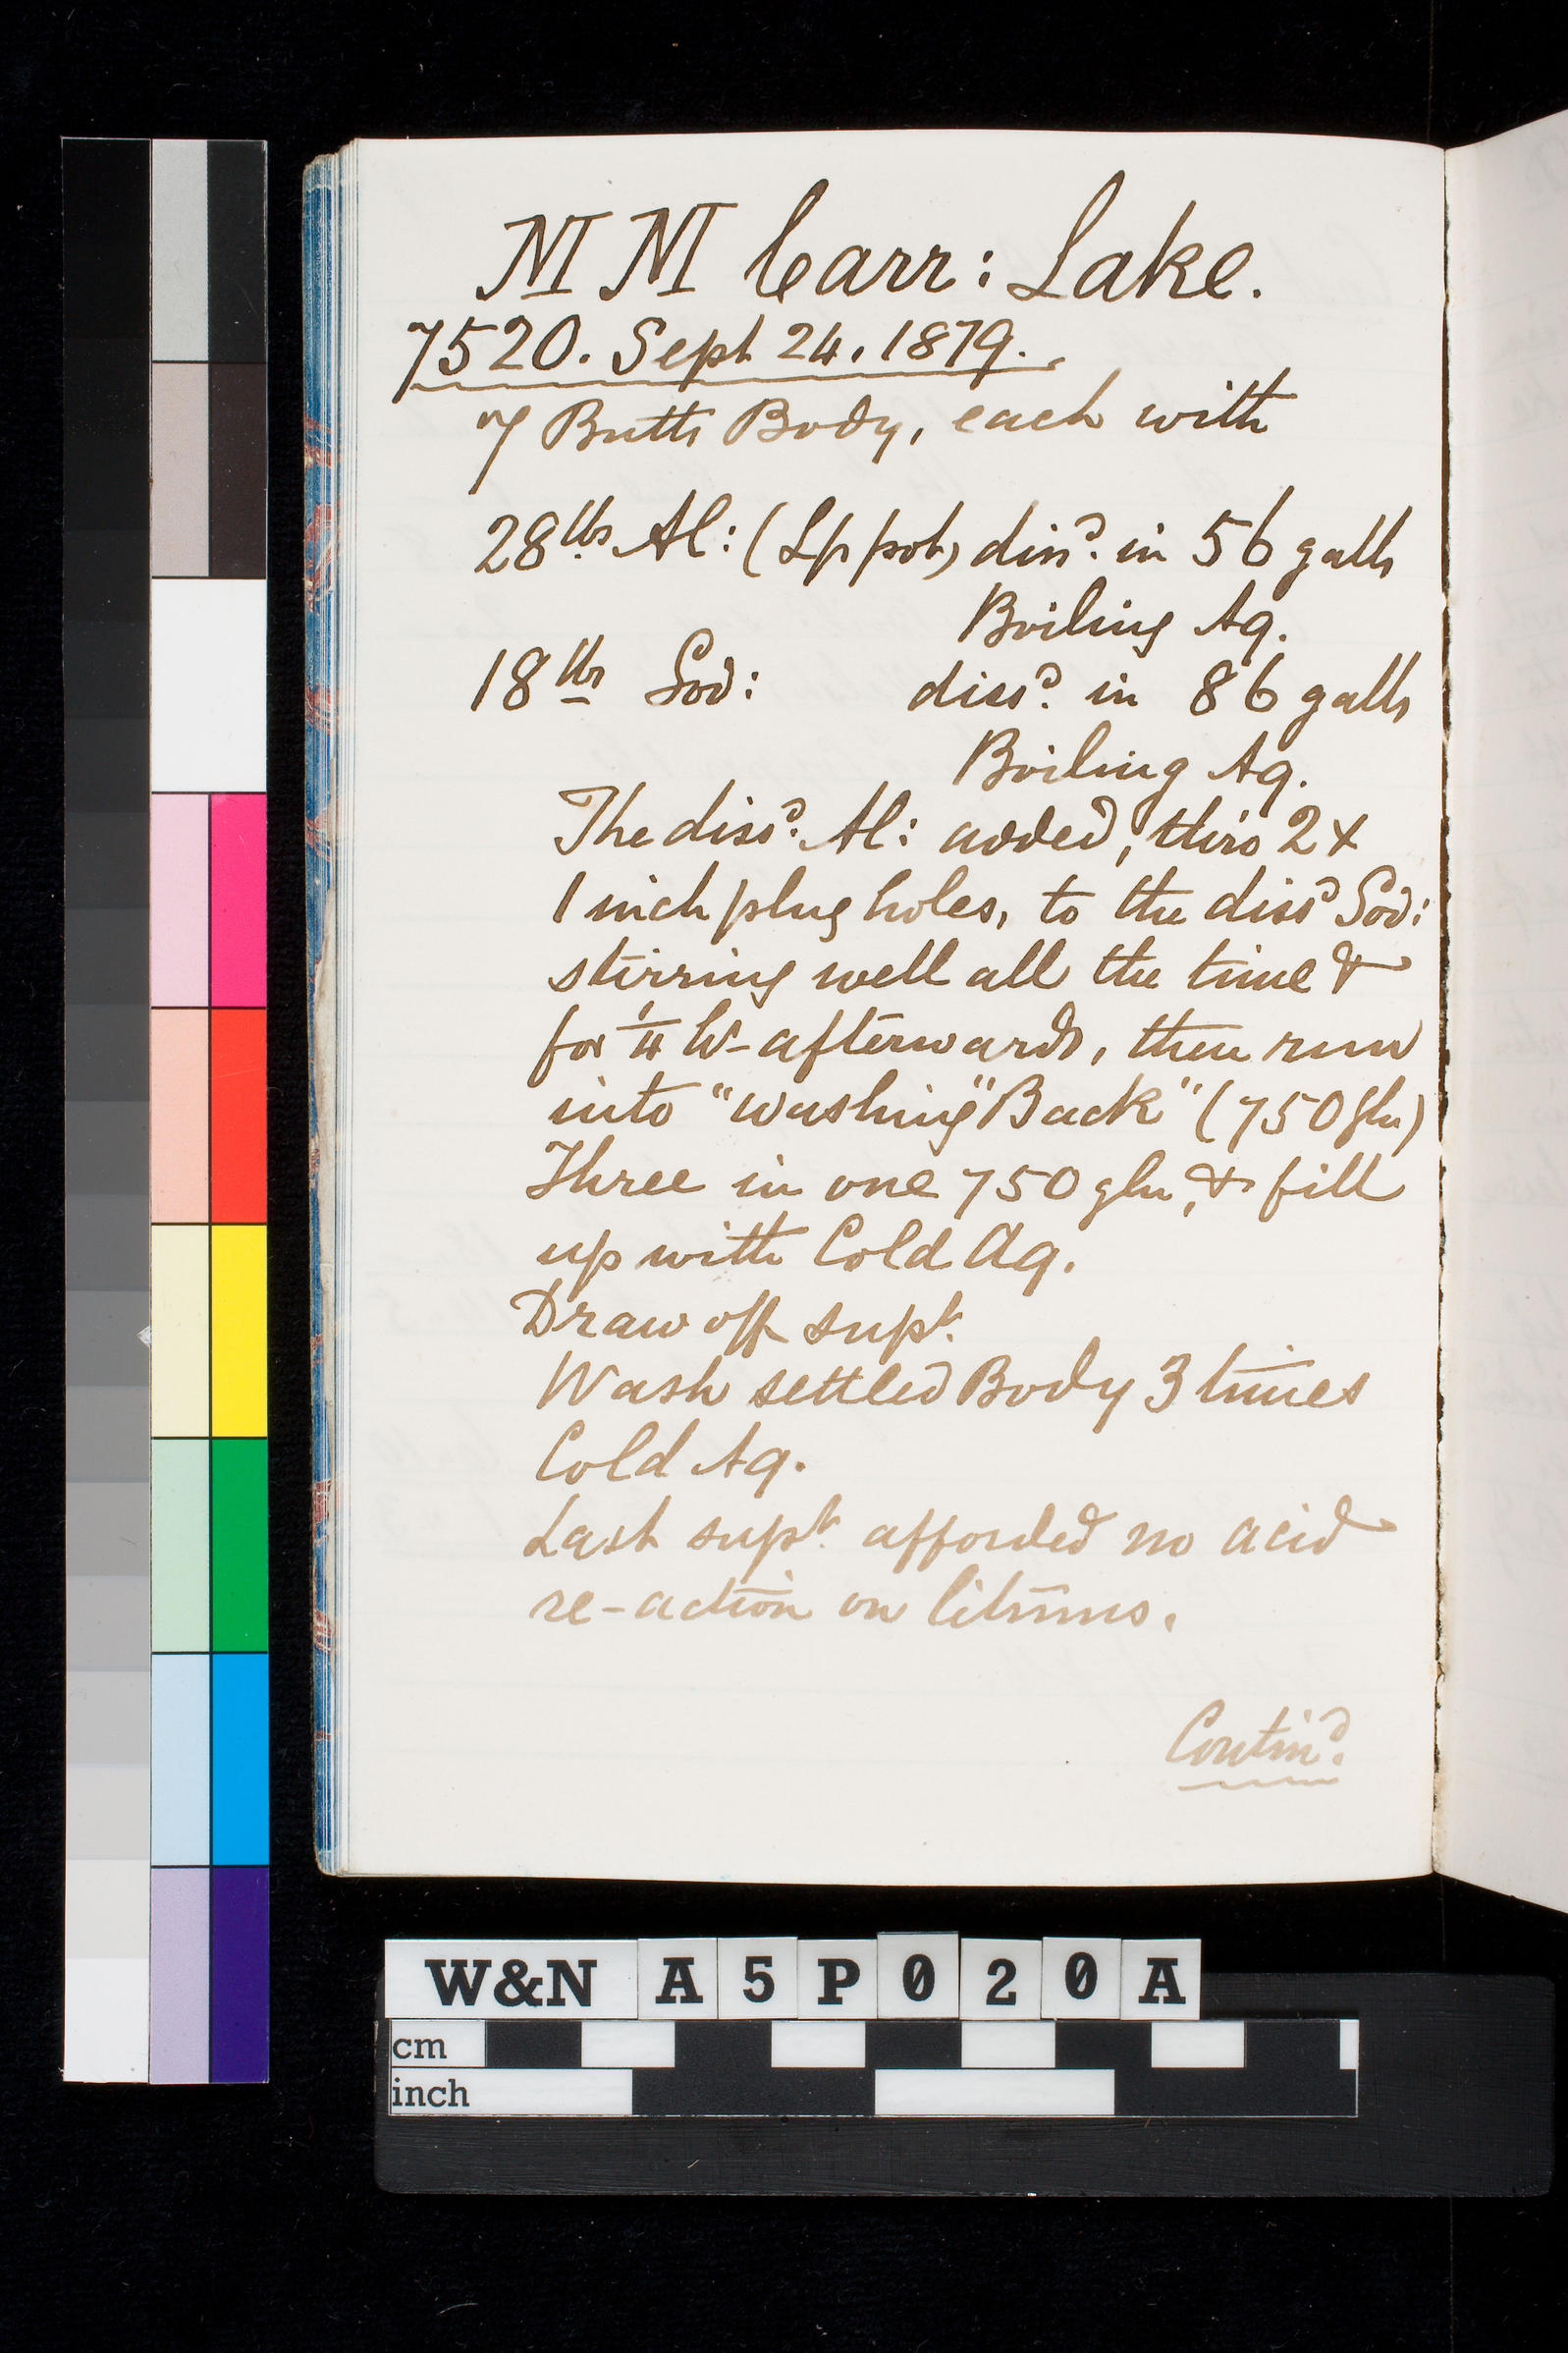 M M Carr: Lake.
7520. Sept 24, 1879.
7 Butts Body, each with
28 lbs Al: (Lp pot) dissd. in 56 galls
Boiling Aq.
18 lbs Sod: dissd. in 86 galls
Boiling Aq.
The dissd. Al: added, thro 2 x
1 inch plug holes, to the dissd Sod:
stirring well all the time &
for 1/4 hr- afterwards, then run
into "washing" Back" (750 gln)
Three in one 750 gln, & fill
up with Cold Aq.
Draw off supt.
Wash settled Body 3 times
Cold Aq.
Last supt. afforded no acid
re-action on litmus.
Contind.
W&N A5P020A
cm
inch